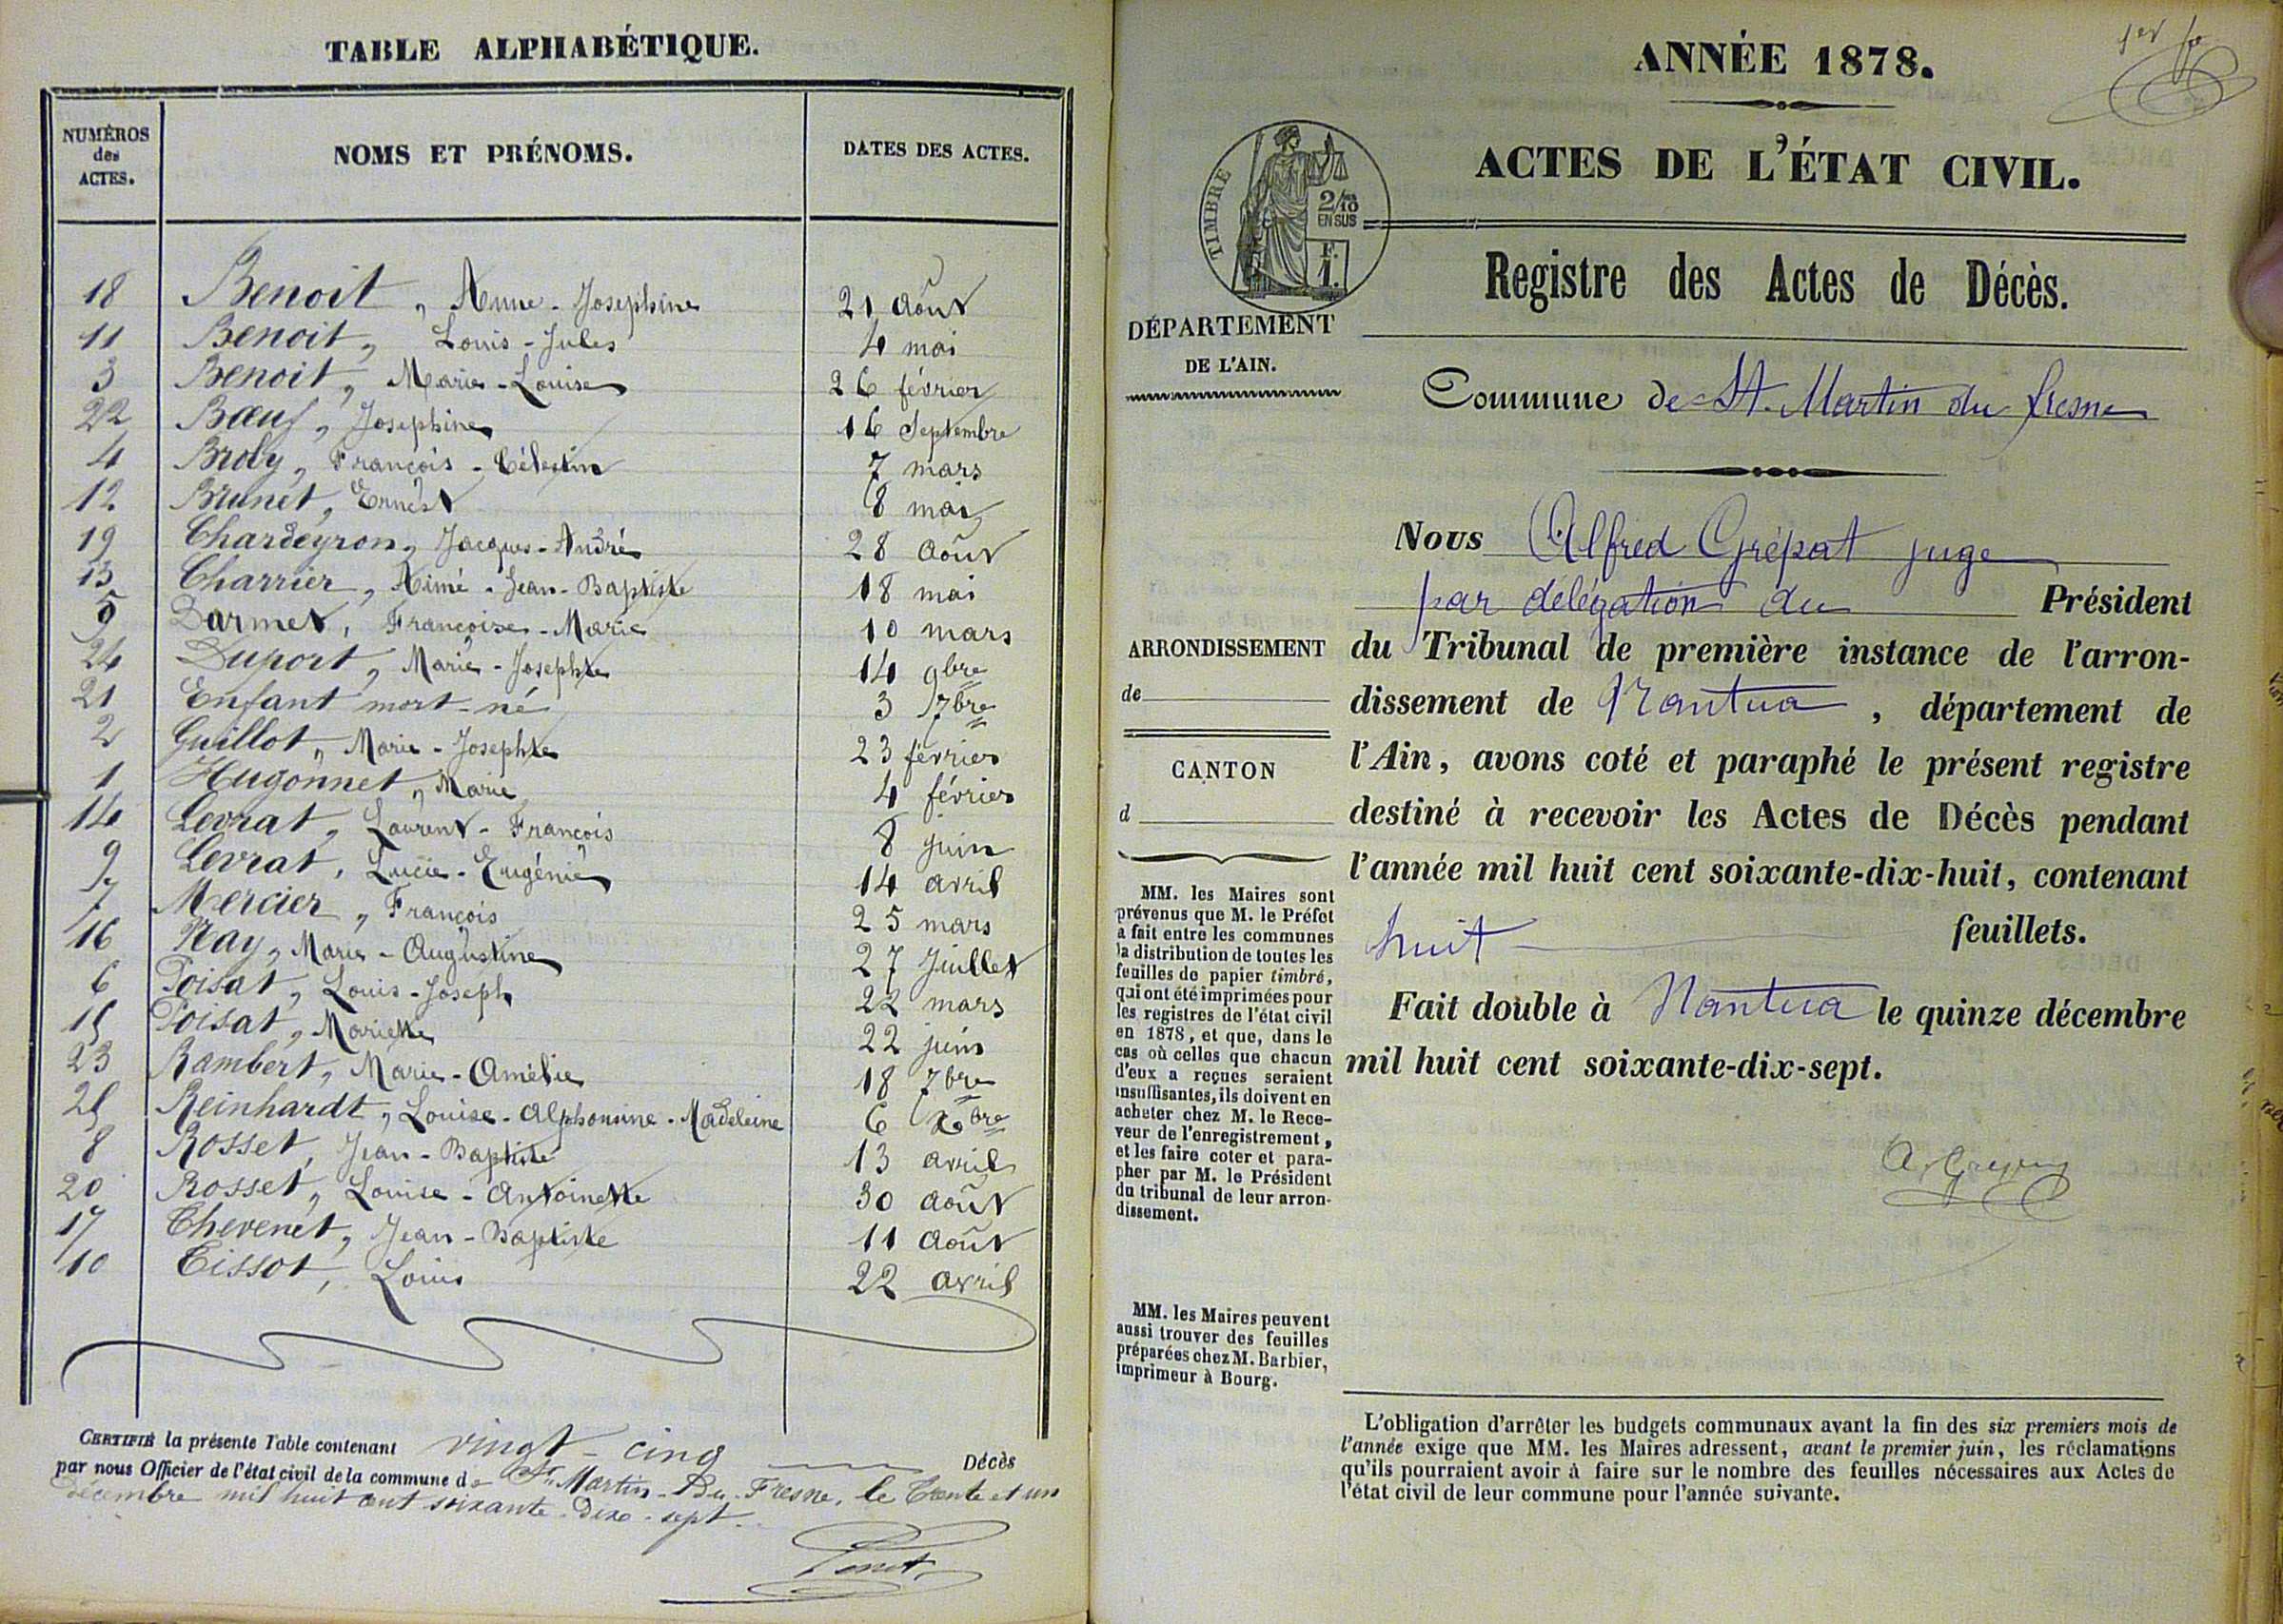 TABLE ALPHABÉTIQUE.
NUMÉROS
des
ACTES.
NOMS ET PRÉNOMS.
DATES DES ACTES.
18 Benoit, Anne-Josephine 21 Août
11 Benoit, Louis-Jules 4 mai
3 Benoit, Marie-Louise 26 février
22 Bœuf, Josephine 16 Septembre
4 Broly, François-Célestin 7 mars
12 Brunet, Ernest 8 mai
19 Chardeyron, Jacques-André 28 Août
13 Charrier, Aimé-Jean-Baptiste 18 mai
5 Darmet, Françoise-Marie 10 mars
24 Duport, Marie-Josephte 14 9bre
21 Enfant mort-né 3 7bre
2 Guillot, Marie-Josephte 23 février
1 Hugonnet, Marie 4 février
14 Levrat, Laurent-François 8 juin
9 Levrat, Lucie-Eugénie 14 avril
7 Mercier, François 25 mars
16 Nay, Marie-Augustine 27 Juillet
6 Poisat, Louis-Joseph 22 mars
15 Poisat, Mariette 22 juin
23 Rambert, Marie-Amélie 18 7bre
25 Reinhardt, Louise-Alphonsine-Madeleine 6 Xbre
8 Rosset, Jean-Baptiste 13 avril
20 Rosset, Louise-Antoinette 30 Août
17 Thevenet, Jean-Baptiste 11 Août
10 Tissot, Louis 22 avril
CERTIFIÉ la présente Table contenant vingt-cinq Décès
par nous Officier de l'état civil de la commune de St Martin-Du-Fresne, le Trente et un
décembre mil huit cent soixante-dix-sept.
Penet
ANNÉE 1878.
ACTES DE L'ÉTAT CIVIL.
TIMBRE
2/10
EN SUS
F.
1.
Registre des Actes de Décès.
DÉPARTEMENT
DE L'AIN.
Commune de St. Martin du fresne
Nous Alfred Grépat juge
par délégation du Président
ARRONDISSEMENT
de
du Tribunal de première instance de l'arron-
dissement de Nantua, département de
l'Ain, avons coté et paraphé le présent registre
destiné à recevoir les Actes de Décès pendant
l'année mil huit cent soixante-dix-huit, contenant
huit feuillets.
Fait double à Nantua le quinze décembre
mil huit cent soixante-dix-sept.
CANTON
d
MM. les Maires sont
prévenus que M. le Préfet
a fait entre les communes
la distribution de toutes les
feuilles de papier timbré,
qui ont été imprimées pour
les registres de l'état civil
en 1878, et que, dans le
cas où celles que chacun
d'eux a reçues seraient
insuffisantes, ils doivent en
acheter chez M. le Rece-
veur de l'enregistrement,
et les faire coter et para-
pher par M. le Président
du tribunal de leur arron-
dissement.
MM. les Maires peuvent
aussi trouver des feuilles
préparées chez M. Barbier,
imprimeur à Bourg.
L'obligation d'arrêter les budgets communaux avant la fin des six premiers mois de
l'année exige que MM. les Maires adressent, avant le premier juin, les réclamations
qu'ils pourraient avoir à faire sur le nombre des feuilles nécessaires aux Actes de
l'état civil de leur commune pour l'année suivante.